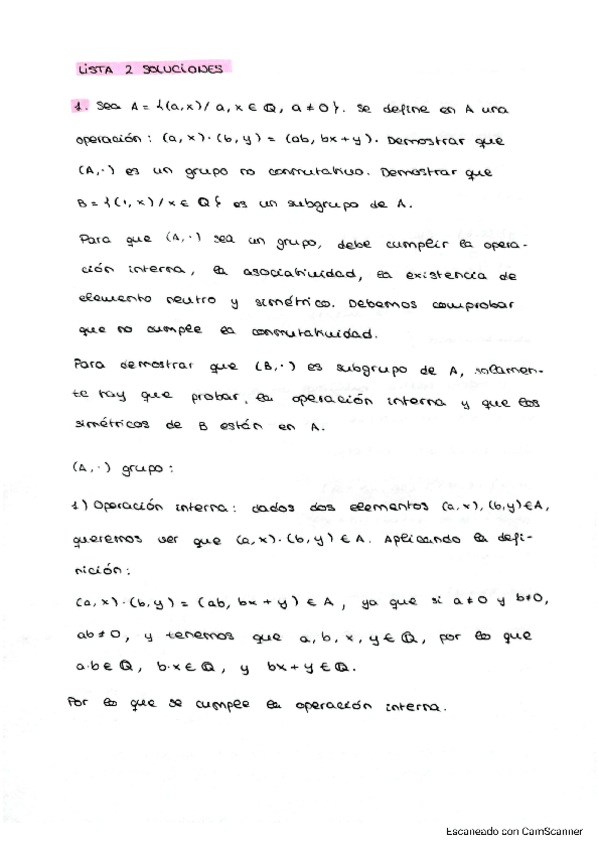 LISTA 2 SOLUCIONES
1. Sea A = {(a,x)/ a, x ∈ ℚ, a ≠ 0}. Se define en A una
operación: (a, x)·(b, y) = (ab, bx + y). Demostrar que
(A,·) es un grupo no conmutativo. Demostrar que
B = {(1, x) / x ∈ ℚ} es un subgrupo de A.
Para que (A,·) sea un grupo, debe cumplir la opera-
ción interna, la asociatividad, la existencia de
elemento neutro y simétrico. Debemos comprobar
que no cumple la conmutatividad.
Para demostrar que (B,·) es subgrupo de A, solamen-
te hay que probar, la operación interna y que los
simétricos de B están en A.
(A,·) grupo:
1) Operación interna: dados dos elementos (a,x), (b,y) ∈ A,
queremos ver que (a,x)·(b,y) ∈ A. Aplicando la defi-
nición:
(a,x)·(b,y) = (ab, bx + y) ∈ A, ya que si a ≠ 0 y b ≠ 0,
ab ≠ 0, y tenemos que a, b, x, y ∈ ℚ, por lo que
a·b ∈ ℚ, b·x ∈ ℚ, y bx + y ∈ ℚ.
Por lo que se cumple la operación interna.
Escaneado con CamScanner